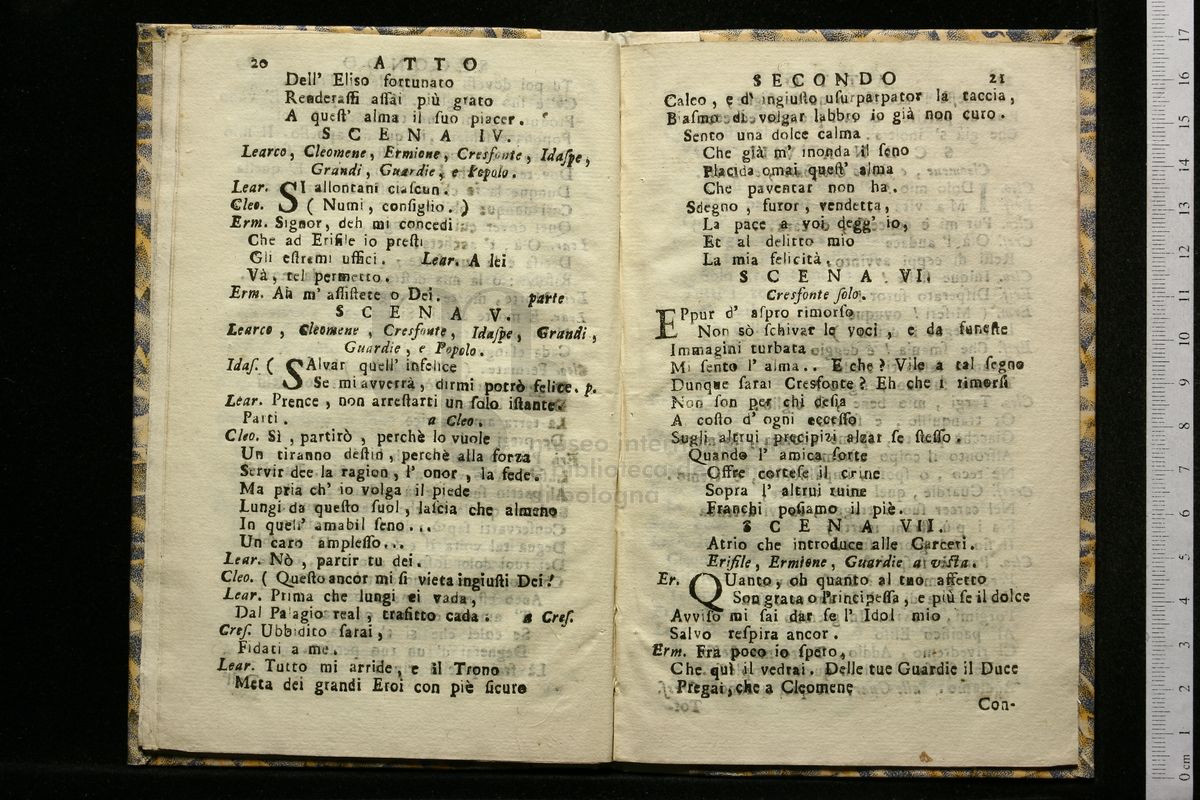 20 ATTO
Dell' Eliso fortunato
Renderaſſi aſſai più grato
A queſt' alma il ſuo piacer.
SCENA IV.
Learco, Cleomene, Ermione, Cresfonte, Idaſpe,
Grandi, Guardie, e Popolo.
Lear. SI allontani ciaſcun.
Cleo. ( Numi, conſiglio. )
Erm. Signor, deh mi concedi
Che ad Erifile io preſti
Gli eſtremi uffici. Lear. A lei
Và, tel permetto.
Erm. Ah m' aſſiſtete o Dei. parte
SCENA V.
Learco, Cleomene, Cresfonte, Idaſpe, Grandi,
Guardie, e Popolo.
Idaſ. ( SAlvar quell' infelice
Se mi avverrà, dirmi potrò felice. p.
Lear. Prence, non arreſtarti un ſolo iſtante.
Parti. a Cleo.
Cleo. Sì, partirò, perchè lo vuole
Un tiranno deſtin, perchè alla forza
Servir dee la ragion, l' onor, la fede.
Ma pria ch' io volga il piede
Lungi da queſto ſuol, laſcia che almeno
In quell' amabil ſeno...
Un caro ampleſſo...
Lear. Nò, partir tu dei.
Cleo. ( Queſto ancor mi ſi vieta ingiuſti Dei!
Lear. Prima che lungi ei vada,
Dal Palagio real, trafitto cada. a Creſ.
Creſ. Ubbidito ſarai,
Fidati a me.
Lear. Tutto mi arride, e il Trono
Meta dei grandi Eroi con piè ſicuro
SECONDO 21
Calco, e d' ingiuſto uſurpatpator la taccia,
Biaſmo di volgar labbro io già non curo.
Sento una dolce calma
Che già m' inonda il ſeno
Placida omai queſt' alma
Che paventar non ha.
Sdegno, furor, vendetta,
La pace a voi degg' io,
Et al delitto mio
La mia felicità.
SCENA VI.
Cresfonte ſolo.
EPpur d' aſpro rimorſo
Non sò ſchivar le voci, e da funeſte
Immagini turbata
Mi ſento l' alma.. E che? Vile a tal ſegno
Dunque ſarai Cresfonte? Eh che i rimorſi
Non ſon per chi deſia
A coſto d' ogni ecceſſo
Sugli altrui precipizi alzar ſe ſteſſo.
Quando l' amica ſorte
Offre corteſe il crine
Sopra l' altrui ruine
Franchi poſiamo il piè.
SCENA VII.
Atrio che introduce alle Carceri.
Erifile, Ermione, Guardie a viſta.
Er. QUanto, oh quanto al tuo affetto
Son grata o Principeſſa, e più ſe il dolce
Avviſo mi ſai dar ſe l' Idol mio
Salvo reſpira ancor.
Erm. Fra poco io ſpero,
Che quì il vedrai. Delle tue Guardie il Duce
Pregai, che a Cleomene
Con-